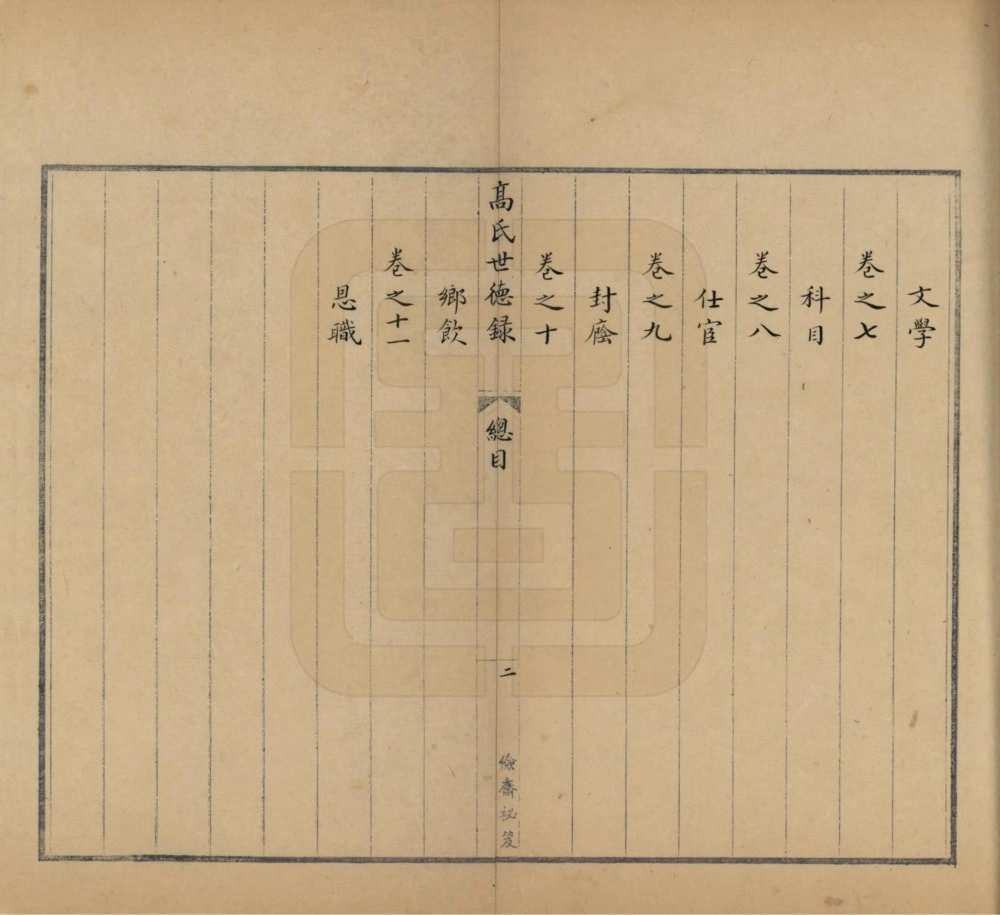 文學
卷之七
科目
卷之八
仕宦
卷之九
封廕
卷之十
高氏世德録
總目
二
儉齋祕笈
鄉飲
卷之十一
恩職